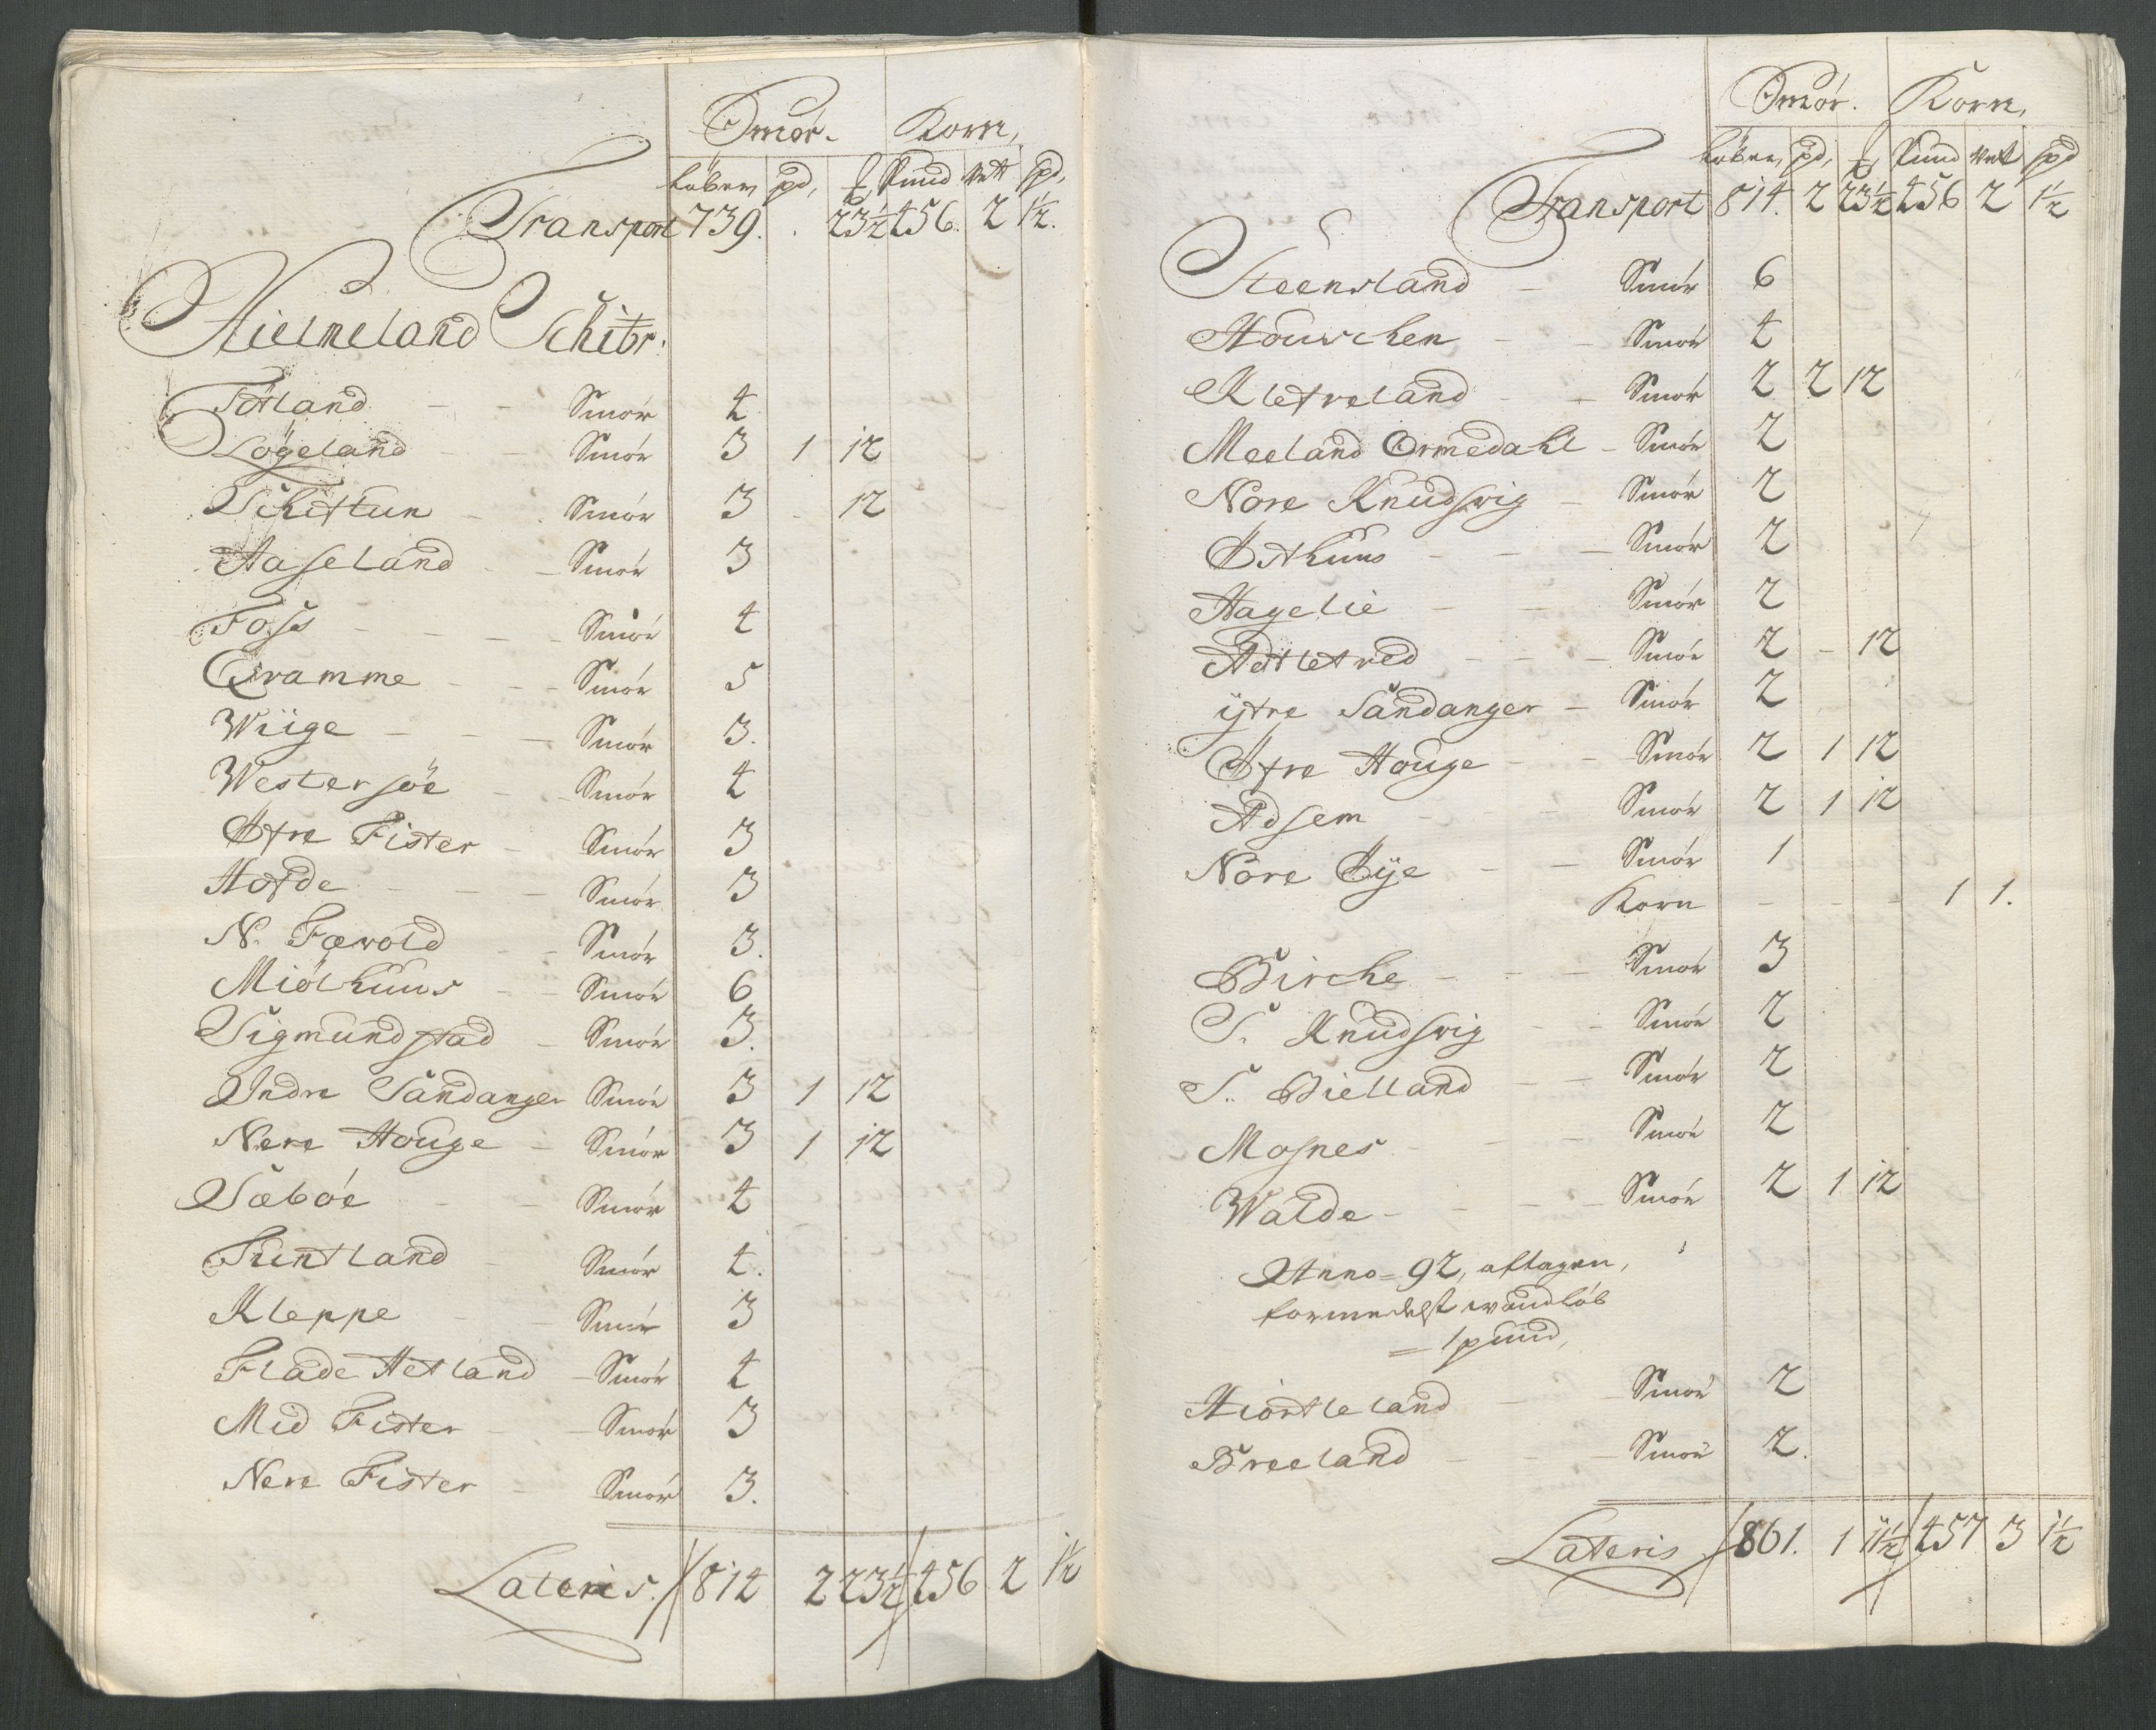 Smör. Korn,
Löber, pd, ℔, Pund Vett Spd,
Transport 739. . 23½ 456. 2 1½.
Hielmeland Schibr:
Tötland - - Smör 4
Lögeland - - Smör 3 1 12
Schiftun - - Smör 3 - 12
Aaseland - - Smör 3
Foss - - - - Smör 4
Qvamme - - - Smör 5
Wiige - - - Smör 3.
Westersöe - - Smör 4
Øfre Fister - Smör 3
Hofde - - - Smör 3
N. Færvold - - Smör 3.
Miölhuus - - Smör 6
Sigmundstad - Smör 3.
Indre Sandanger Smör 3 1 12
Nere Houge - Smör 3 1 12
Sæböe - - Smör 4
Funtland - Smör 4.
Kleppe - - Smör 3
Flade Hetland - Smör 4
Mid Fister - - Smör 3
Nere Fister - Smör 3.
Lateris. 814 2 23½ 456 2 1½
Smör. Korn,
Löber, pd, ℔, Pund Vet Spd
Transport 814. 2 23½ 456 2 1½
Steensland - Smör 6
Houschen - - Smör 4
Kletveland - - Smör 2 2 12
Meeland Ormedahl - Smör 2
Nore Knudsvig - Smör 2
Østhuus - - - Smör 2
Hagelie - - Smör 2
Adtletved - - - Smör 2 - 12
ÿtre Sandanger - Smör 2
Øfre Houge - - Smör 2 1 12
Adsem - - - Smör 2 1 12
Nore Øÿe - - Smör 1
Korn - - - - 1 1.
Birche - - - Smör 3
S. Knudsvig - - Smör 2
S. Bielland - - Smör 2
Mosnes - - - Smör 2
Walde - - - - Smör 2 1 12
Anno = 92, aftagen,
formedelst vandlöb
= 1 pund,
Hiortleland - - Smör 2
Breeland - - - Smör 2.
Lateris 861. 1 11½ 457 3 1½